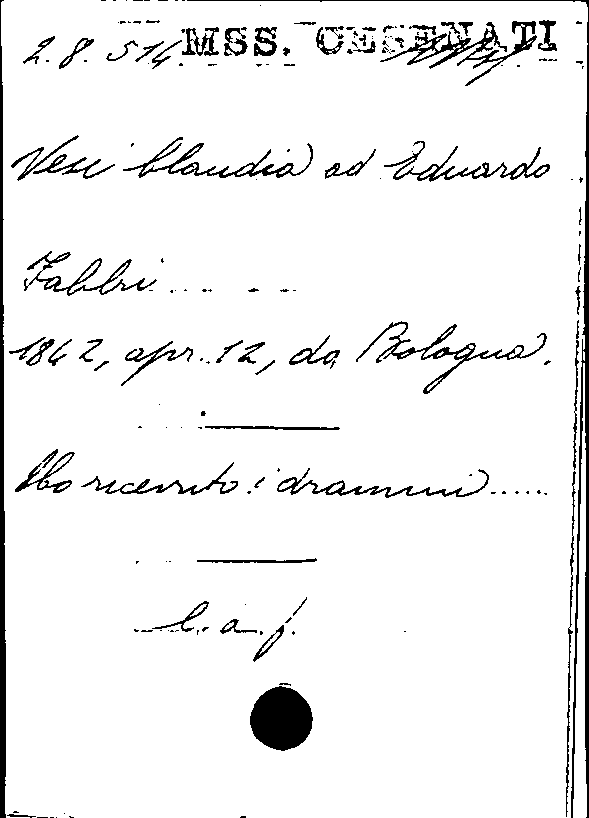 2.8.514 MSS. CESENATI
Vesi Claudia ad Eduardo
Fabbri.....
1842, apr. 12, da Bologna.
Ho ricevuto i drammi.....
l. a. f.